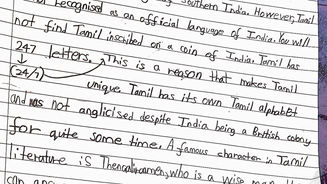 recognised as an official language of India. However, Tamil
not find Tamil inscribed on a coin of India. Tamil has
247 letters. This is a reason that makes Tamil
(24/7) unique. Tamil has its own Tamil alphabet
and was not anglicised despite India being a British colony
for quite some time. A famous character in Tamil
literature is who is a wise man